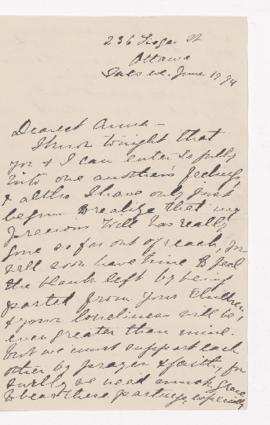 236
Ottawa
June 19
Dearest Anna -
I know tonight that
you & I can enter so fully
into one another's feelings
& altho I have only just
begun to realize that my
precious Will has really
gone so far out of reach, you
will soon have time to feel
the blank left by being
parted from your children
& your loneliness will be
even greater than mine.
but we must support each
other by prayer & faith, for
surely we need much grace
to bear these partings, especially